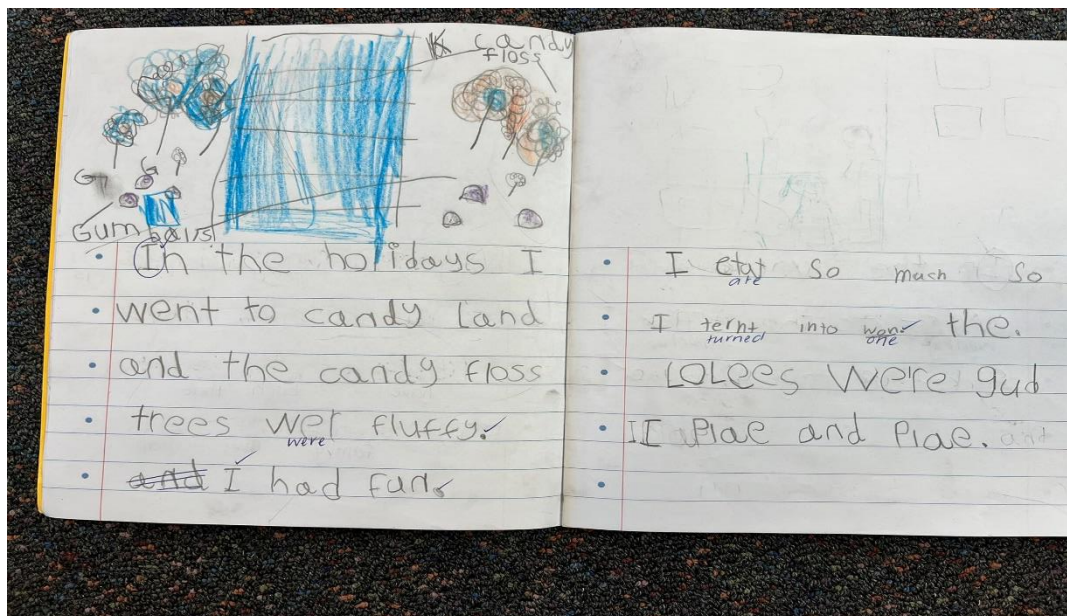 candy
floss
Gumballs
In the holidays I
went to candy land
and the candy floss
trees wer fluffy.
were
and I had fun.
I etat so much so
ate
I ternt into won. the.
turned one
LOLees were gud
I Plae and Plae. and